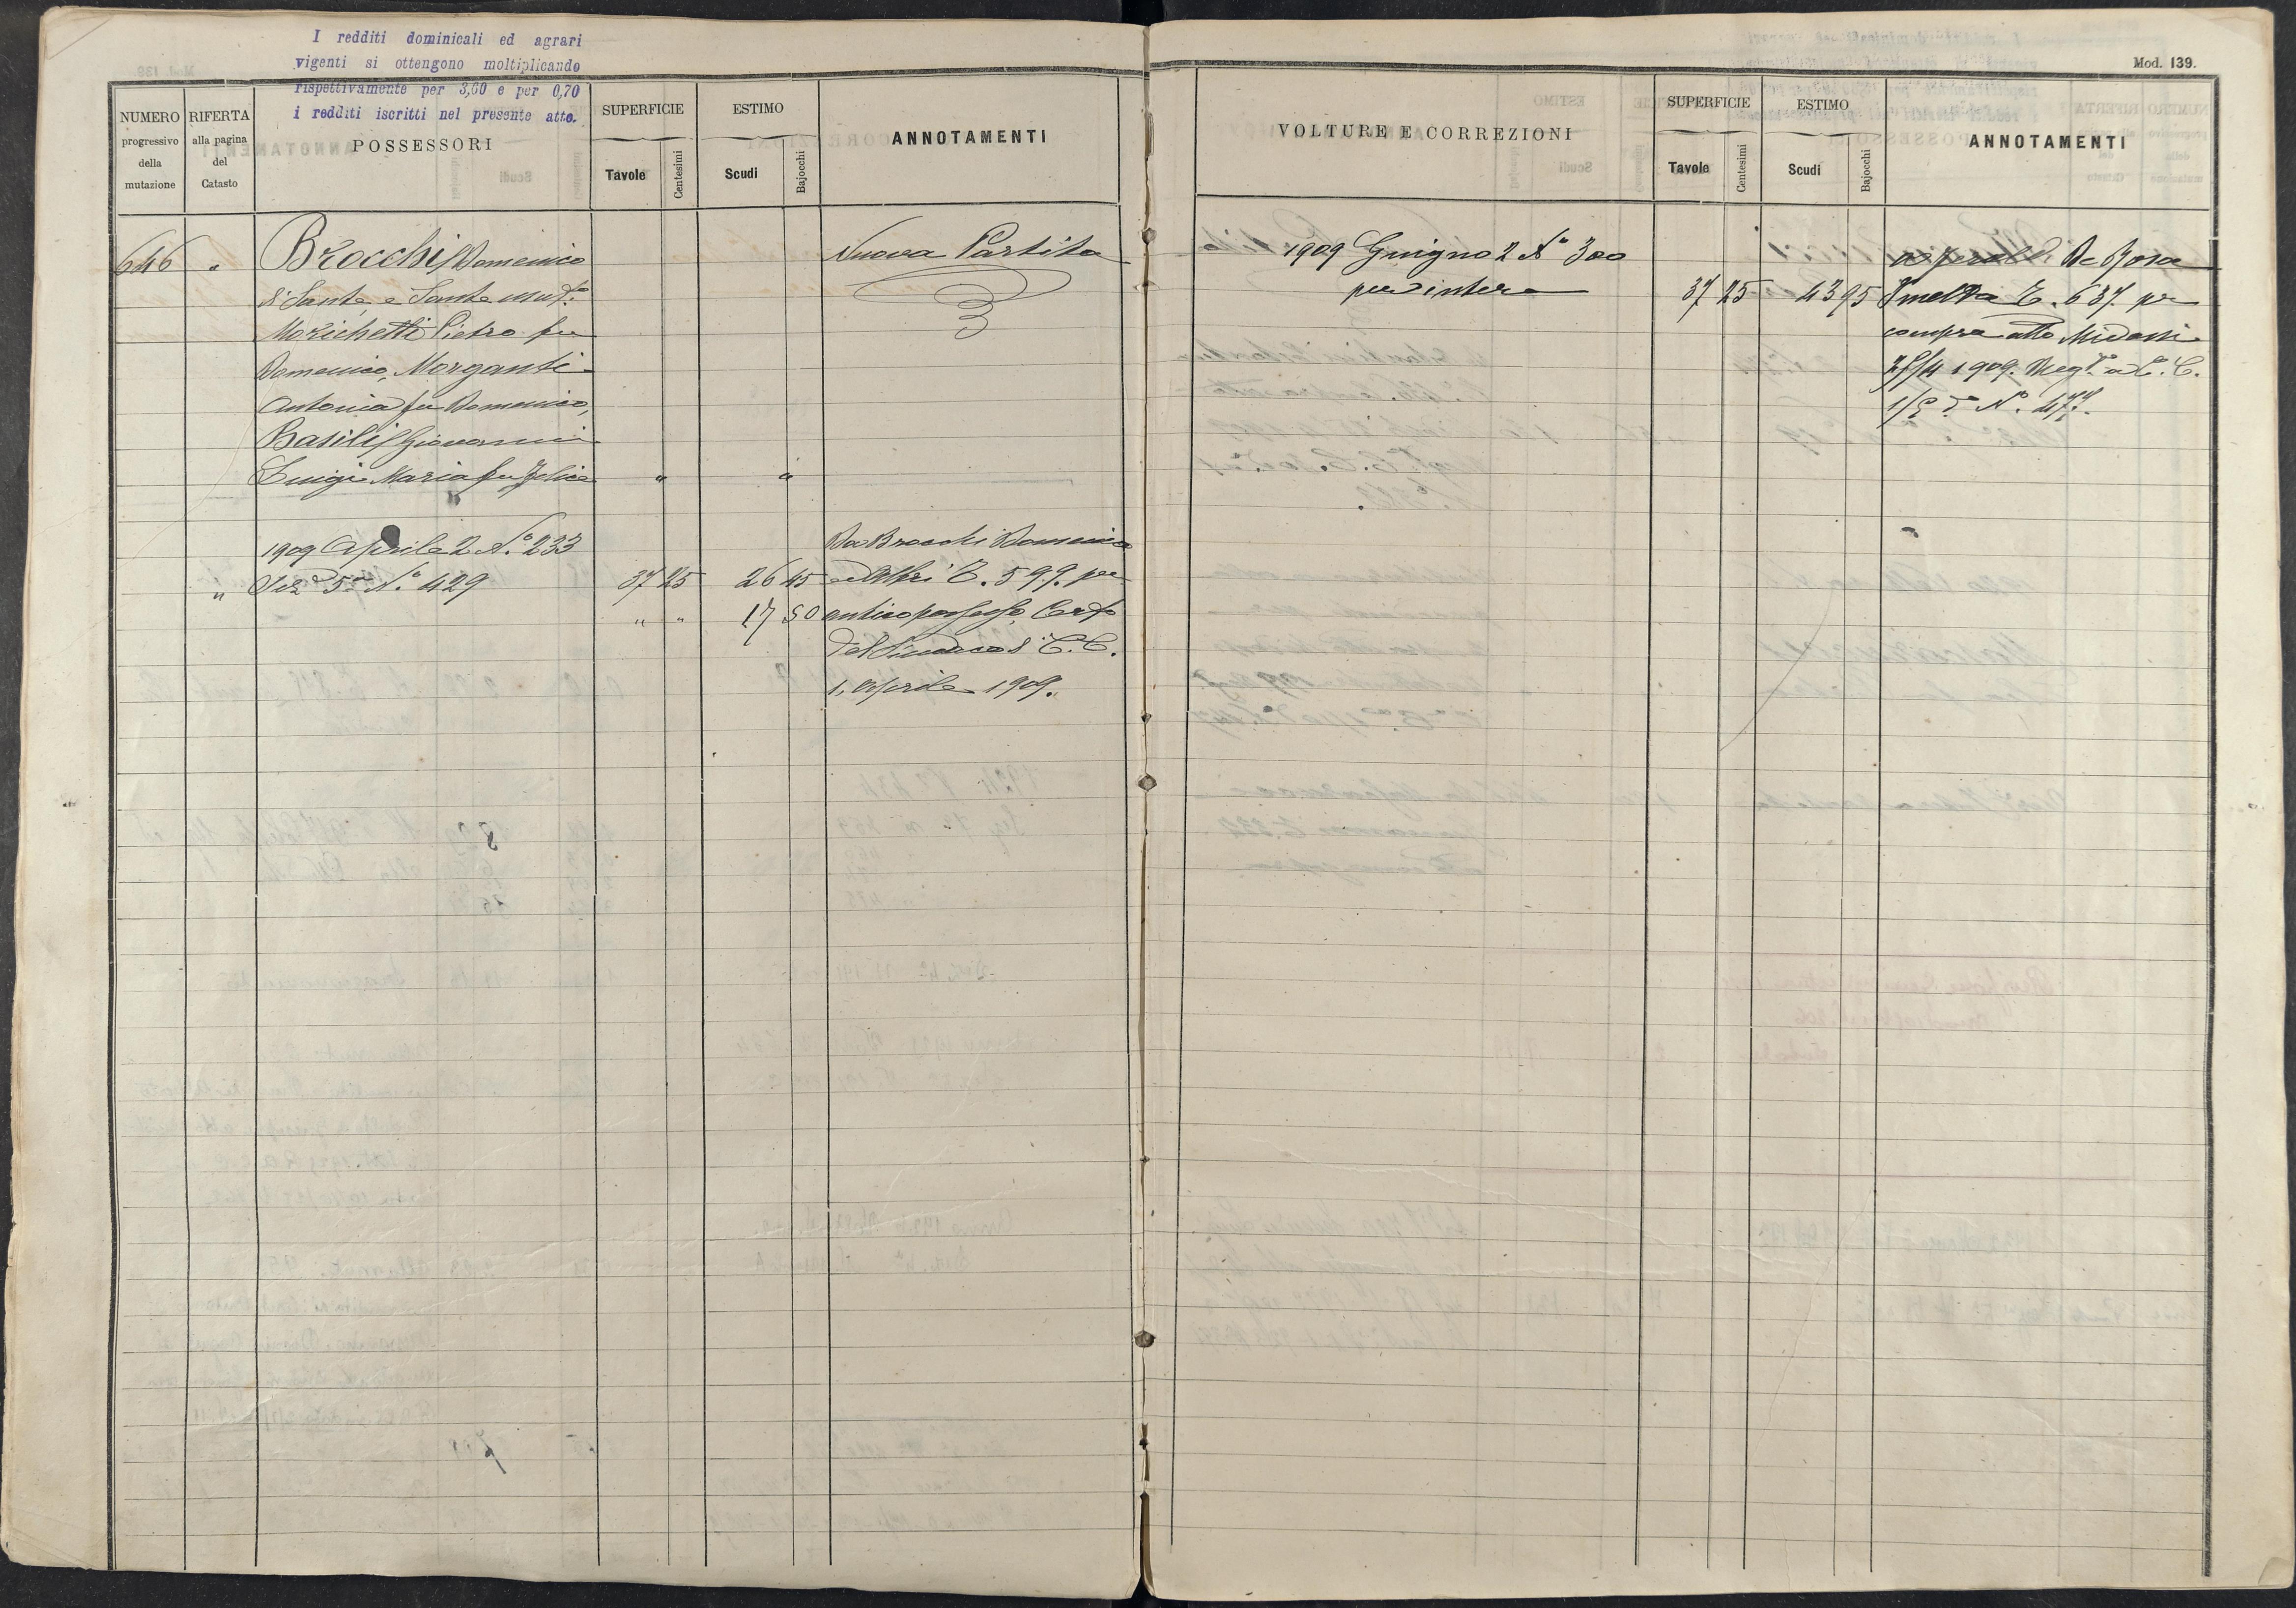 I redditi dominicali ed agrari
vigenti si ottengono moltiplicando
rispettivamente per 3,60 e per 0,70
i redditi iscritti nel presente atto.
NUMERO
progressivo
della
mutazione
RIFERTA
alla pagina
del
Catasto
POSSESSORI
SUPERFICIE
Tavole
Centesimi
ESTIMO
Scudi
Bajocchi
ANNOTAMENTI
646 " Brocchi Domenico Nuova Partita
di Sante, e Sante
Morichetti Pietro fu
Domenico, Morganti
Antonia fu Domenico,
Basili Giovanni
Luigi Maria fu Felice " "
1909 Aprile 2 N.º 233 Da Brocchi Domenico
" Sez. 5ª N.º 429 37 25 26 45 ed altri C. 599. per
" " 17 50 antico possesso, Certo
del Sindaco di C. C.
1, Aprile 1909.
Mod. 139.
VOLTURE E CORREZIONI
SUPERFICIE
Tavole
Centesimi
ESTIMO
Scudi
Bajocchi
ANNOTAMENTI
1909 Giugno 2 Nº 300 De Rosa
per intero 37 25 43 95 C. 637. per
compra atto
1909. Reg.º a C. C.
Nº. 477.